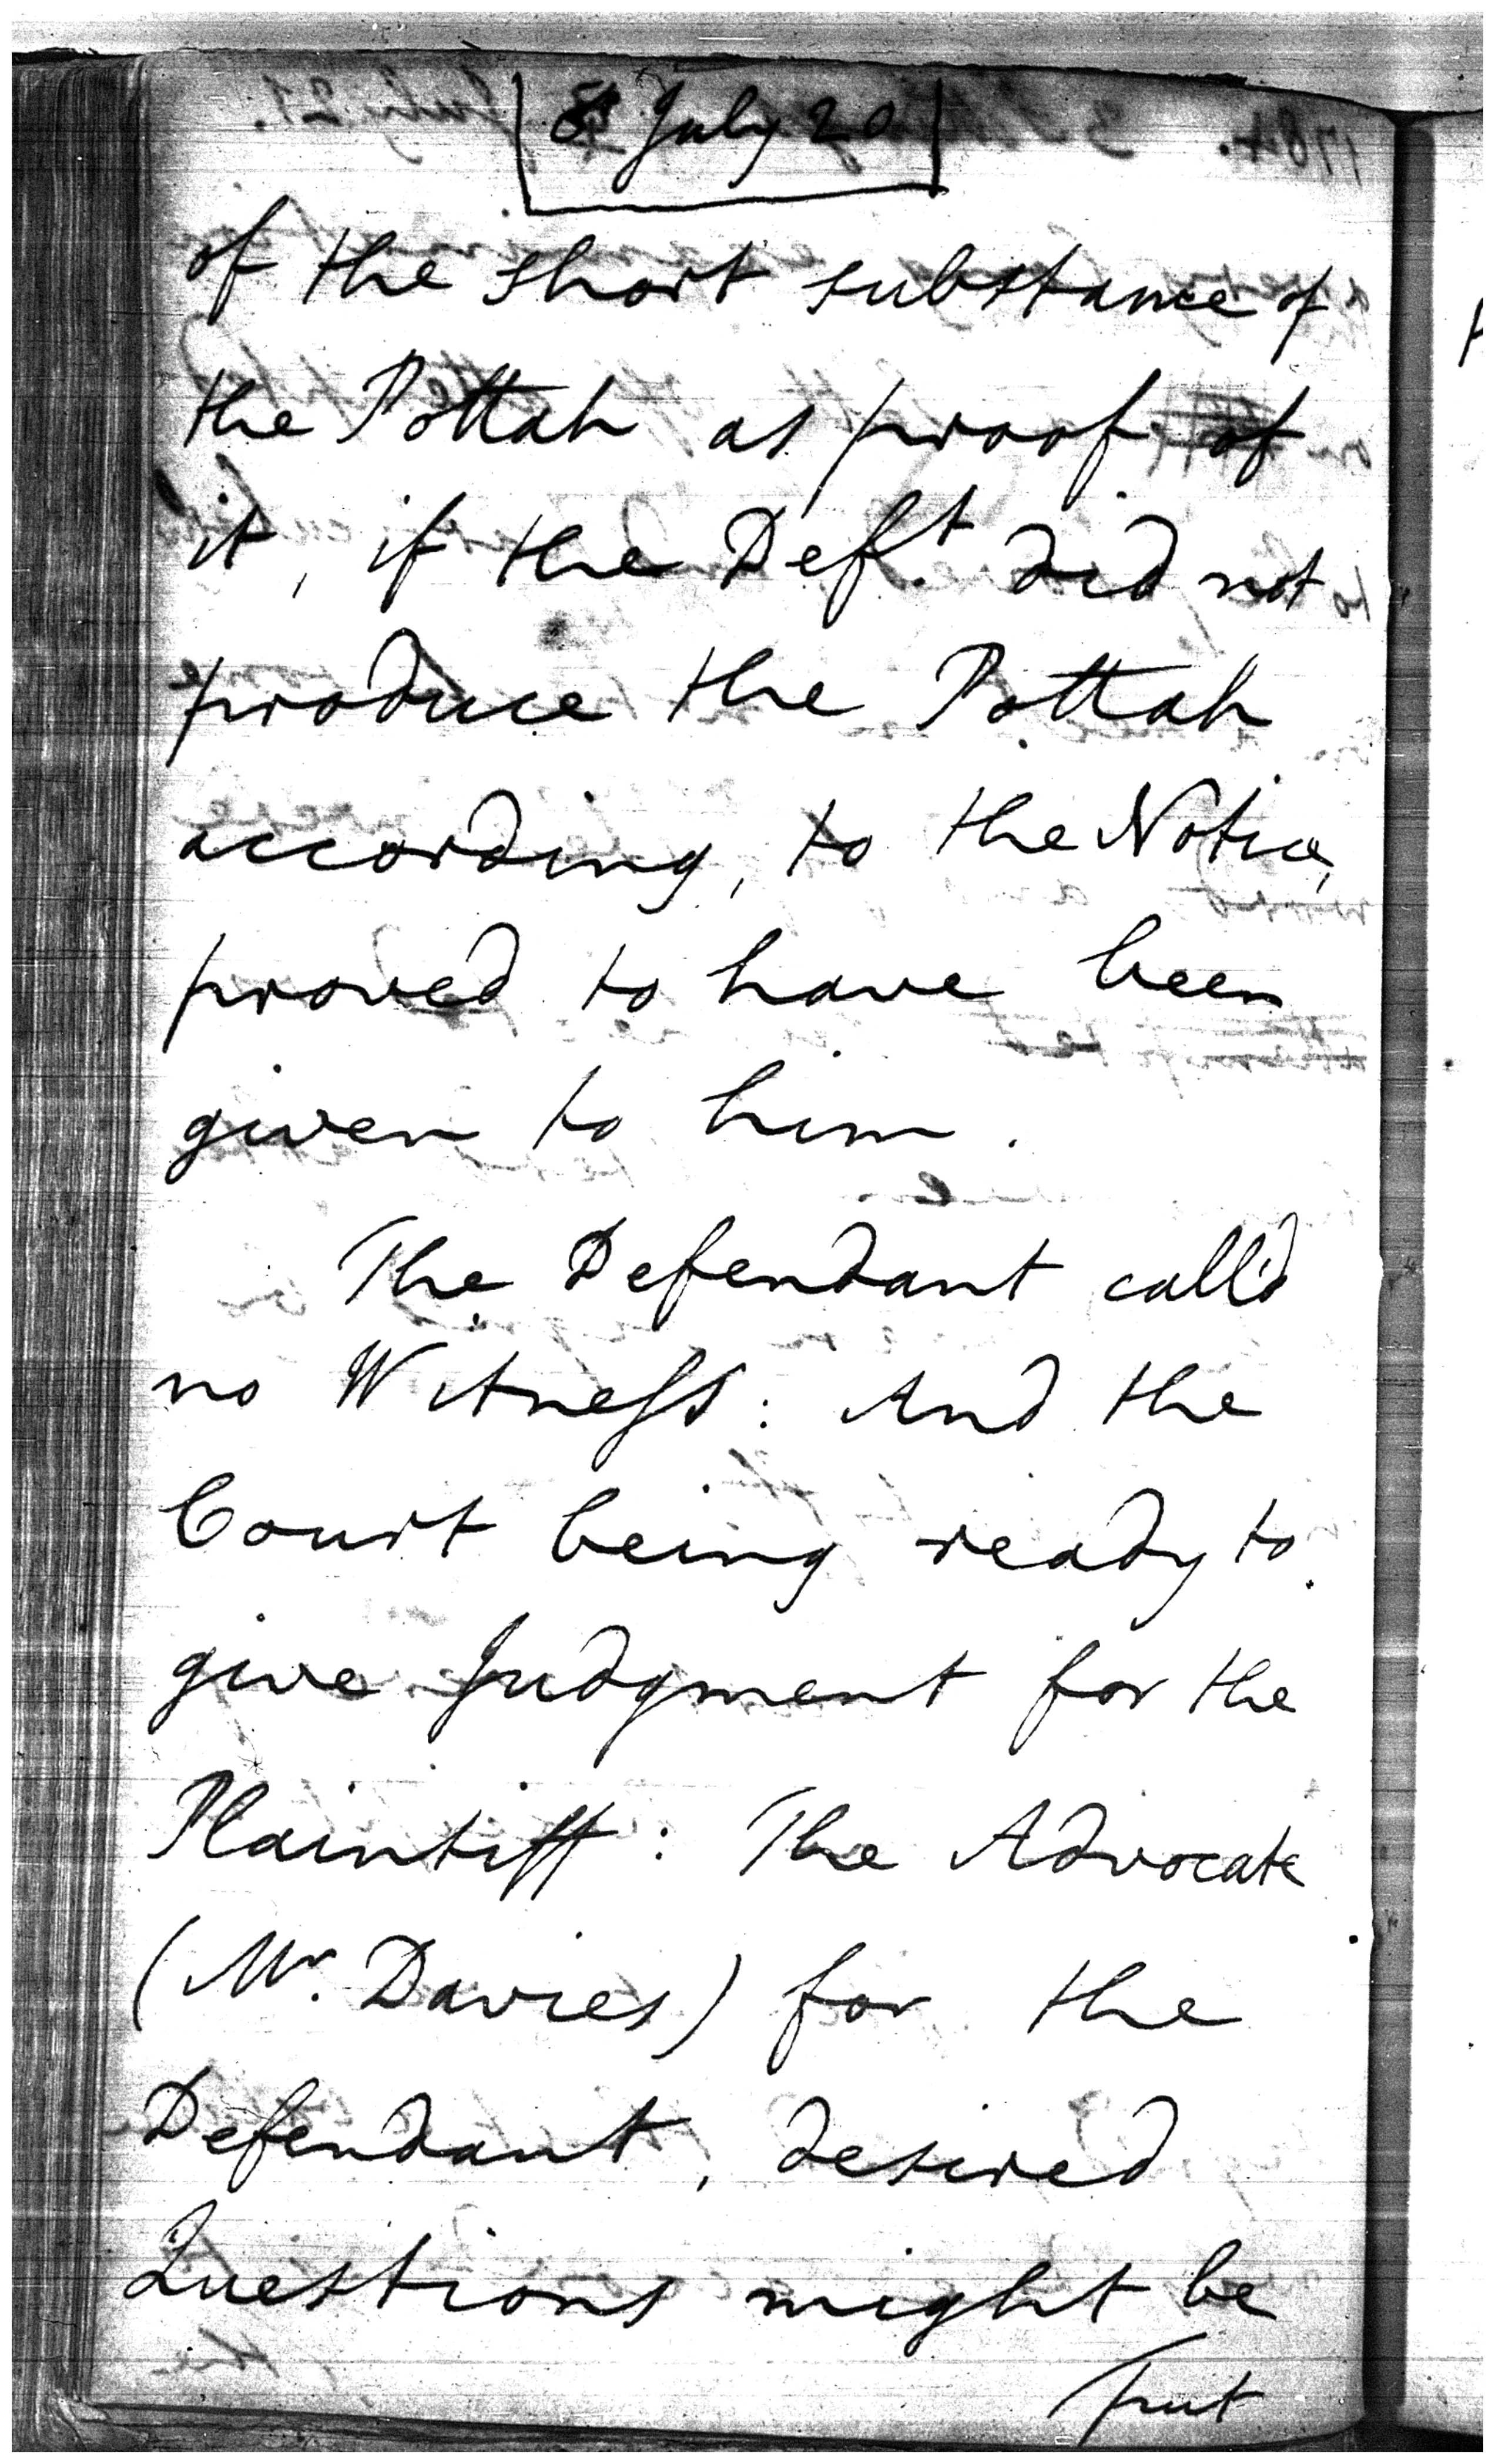 July 20
of the short substance of
the Pottah as proof of
it, if the Deft. did not
produce the Pottah
according, to the Notice,
proved to have been
given to him.
The Defendant call'd
no Witness: And the
Court being ready to
give Judgment for the
Plaintiff: The Advocate
(Mr. Davies) for the
Defendant, desired
Questions might be
put